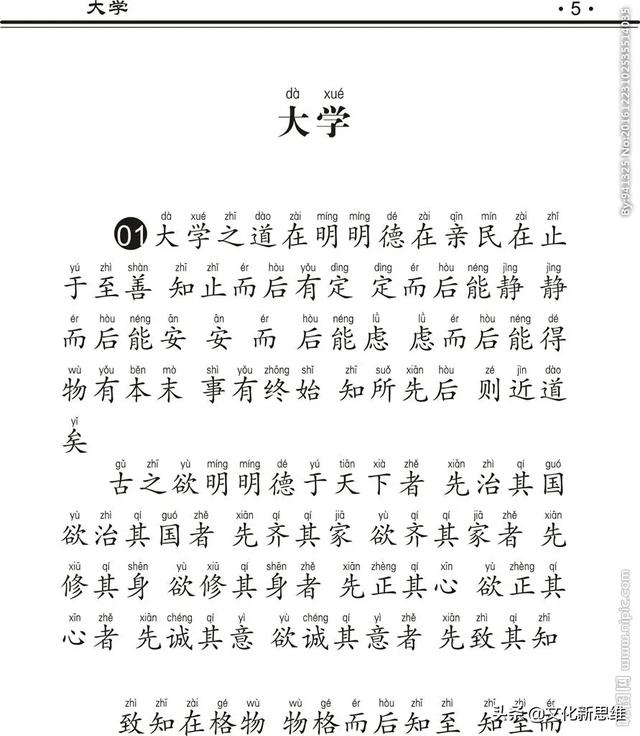 大学 ·5·
dà xué
大学
dà xué zhī dào zài míng míng dé zài qīn mín zài zhǐ
01 大学之道在明明德在亲民在止
yú zhì shàn zhī zhǐ ér hòu yǒu dìng dìng ér hòu néng jìng jìng
于至善 知止而后有定 定而后能静 静
ér hòu néng ān ān ér hòu néng lǜ lǜ ér hòu néng dé
而后能安 安而后能虑 虑而后能得
wù yǒu běn mò shì yǒu zhōng shǐ zhī suǒ xiān hòu zé jìn dào
物有本末 事有终始 知所先后 则近道
yǐ
矣
gǔ zhī yù míng míng dé yú tiān xià zhě xiān zhì qí guó
古之欲明明德于天下者 先治其国
yù zhì qí guó zhě xiān qí qí jiā yù qí qí jiā zhě xiān
欲治其国者 先齐其家 欲齐其家者 先
xiū qí shēn yù xiū qí shēn zhě xiān zhèng qí xīn yù zhèng qí
修其身 欲修其身者 先正其心 欲正其
xīn zhě xiān chéng qí yì yù chéng qí yì zhě xiān zhì qí zhī
心者 先诚其意 欲诚其意者 先致其知
zhì zhī zài gé wù wù gé ér hòu zhī zhì zhī zhì ér
致知在格物 物格而后知至 知至而
头条@文化新思维
By:941325 No:20161223102535514035
www.nipic.com